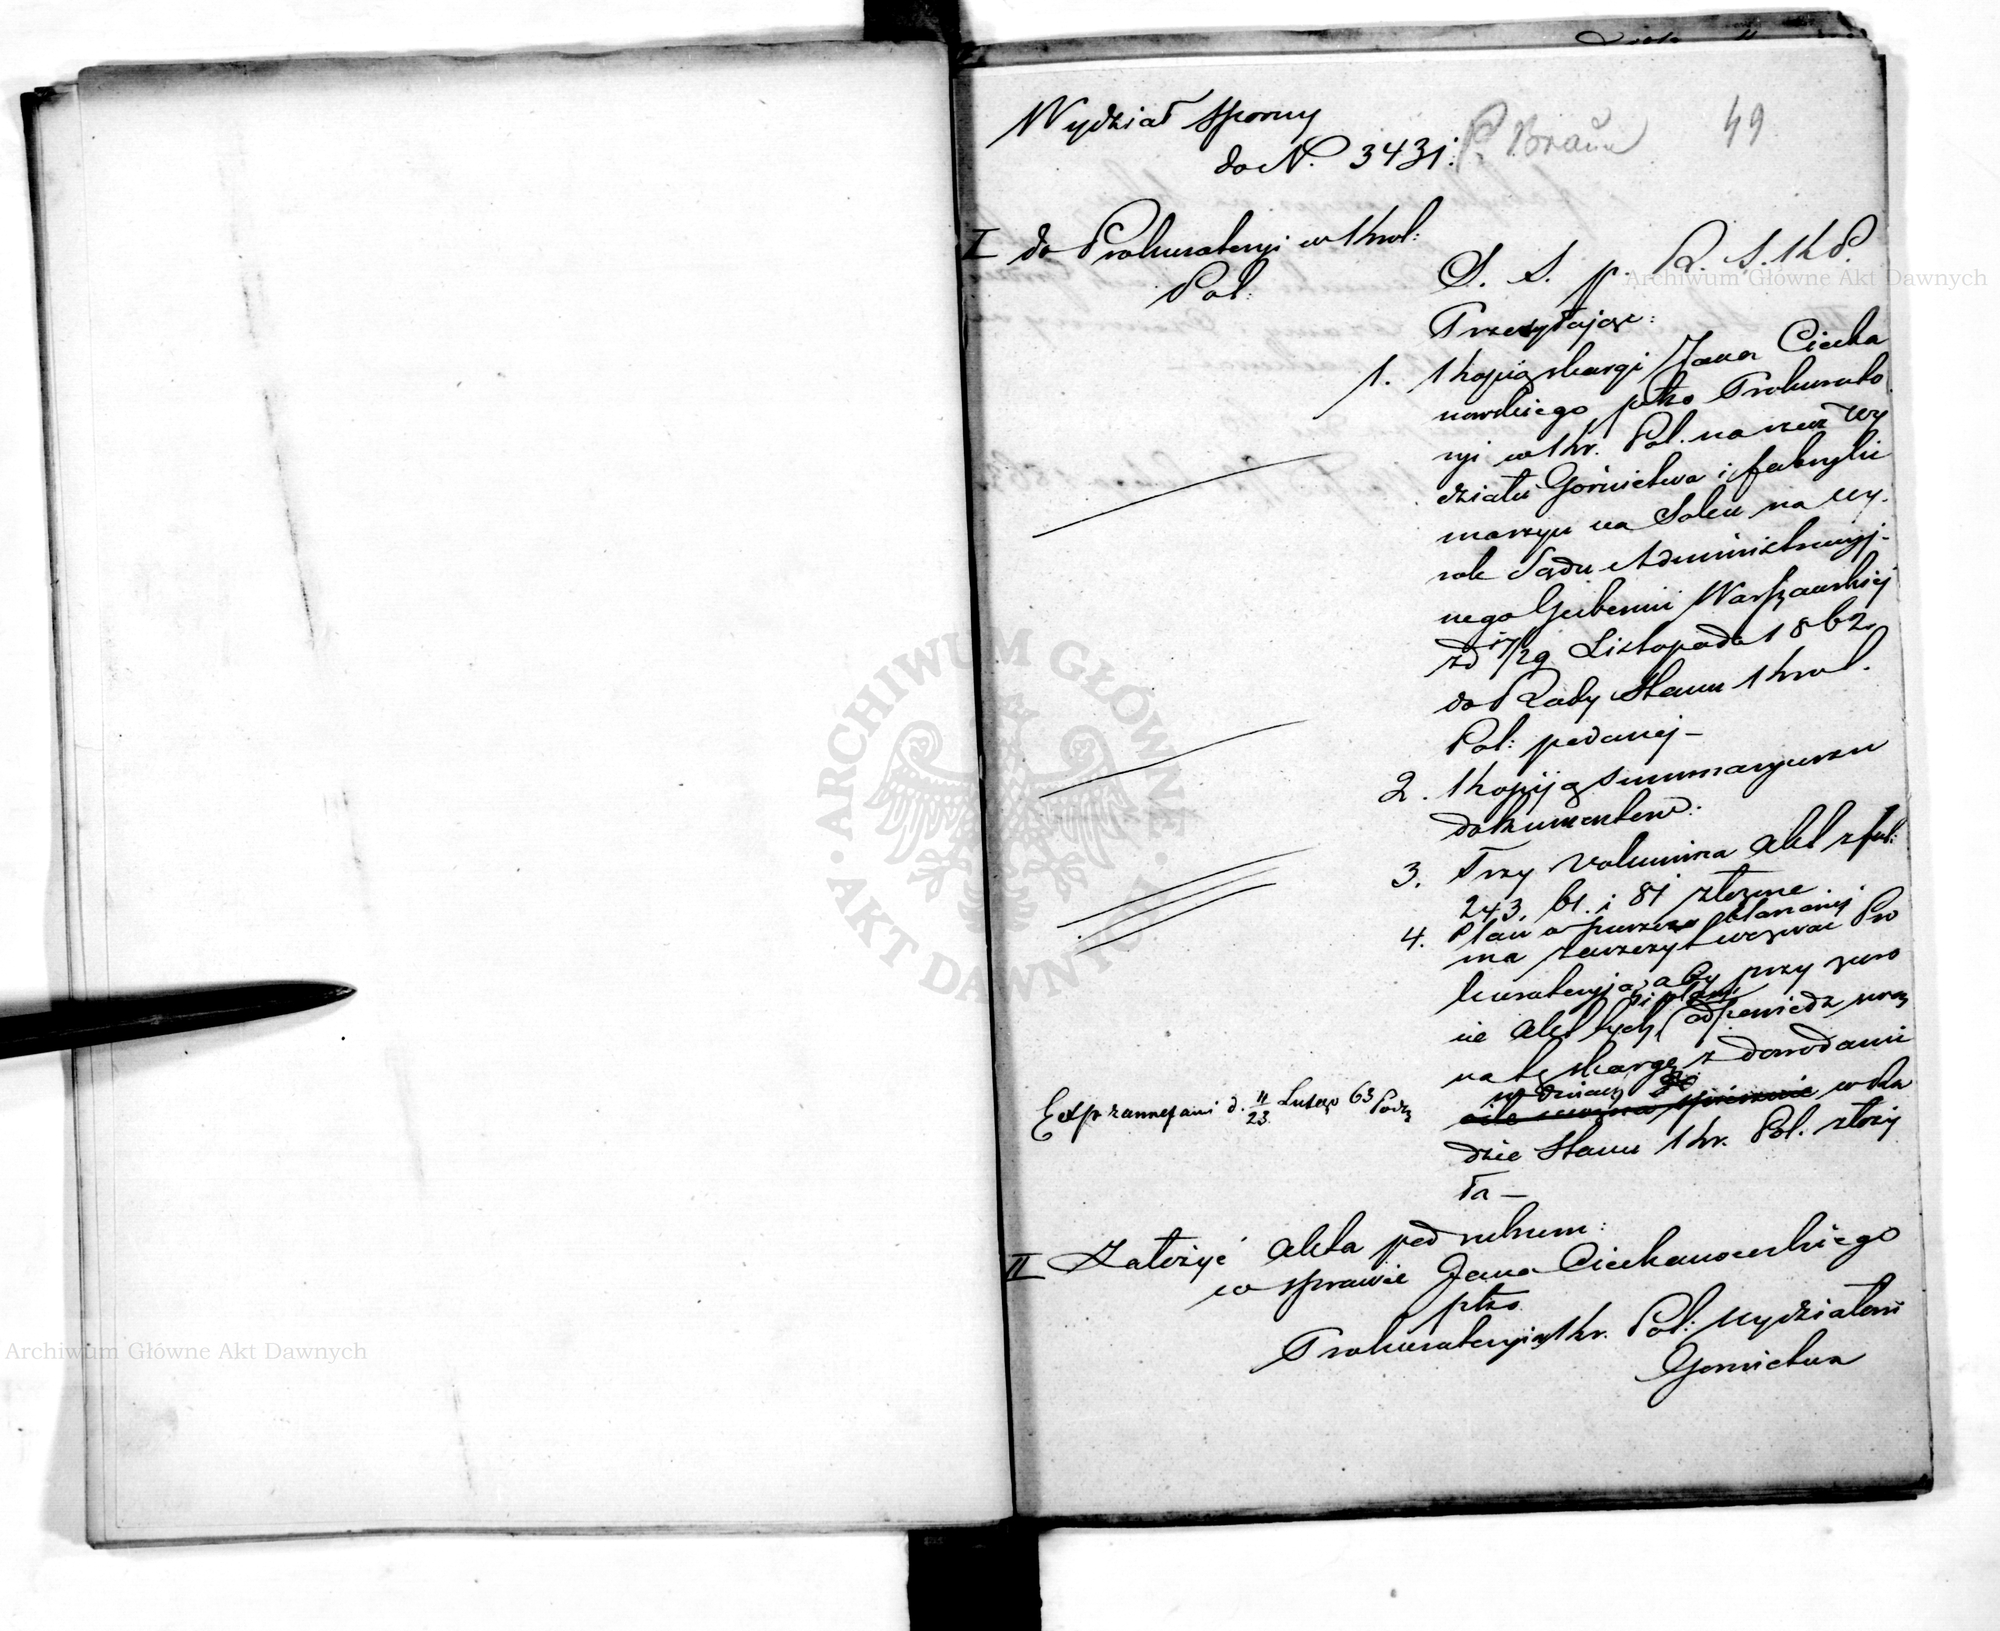 Wydział Sporny
do N. 3431.
P. Braun
49
I do Prokuratoryi w Król:
Pol:
S. S. p. R. S. K P.
Przesyłając:
1. Kopię skargi Jana Ciecha
nowskiego ptko Prokurato
ryi w Kr. Pol. na rzecz Wy
działu Górnictwa i fabryki
machyn na Solcu na wy-
rok Sądu Administracyj-
nego Gubernii Warszawskiej
z d 17/29 Listopada 1862
do Rady Stanu Król.
Pol: podanej —
2. Kopiją summaryusza
dokumentów:
3. Trzy volumina Akt z fol:
243, 61. i 81 złożone
4. Plan
ma zaszczyt wezwać Pro
kuratoryją, aby przy zwro
i planu
cie Akt tych, odpowiedz swą
na tę skargę z dowodami
w dniach
w Ra
dzie Stanu Kr. Pol. złoży
ła —
d. 11/23 Lutego 63
II Założyć Akta pod rubrum:
w sprawie Jana Ciechanowskiego
ptko
Prokuratoryi w Kr. Pol: Wydziałowi
Gornictwa
Archiwum Główne Akt Dawnych
Archiwum Główne Akt Dawnych
ARCHIWUM GŁÓWNE AKT DAWNYCH